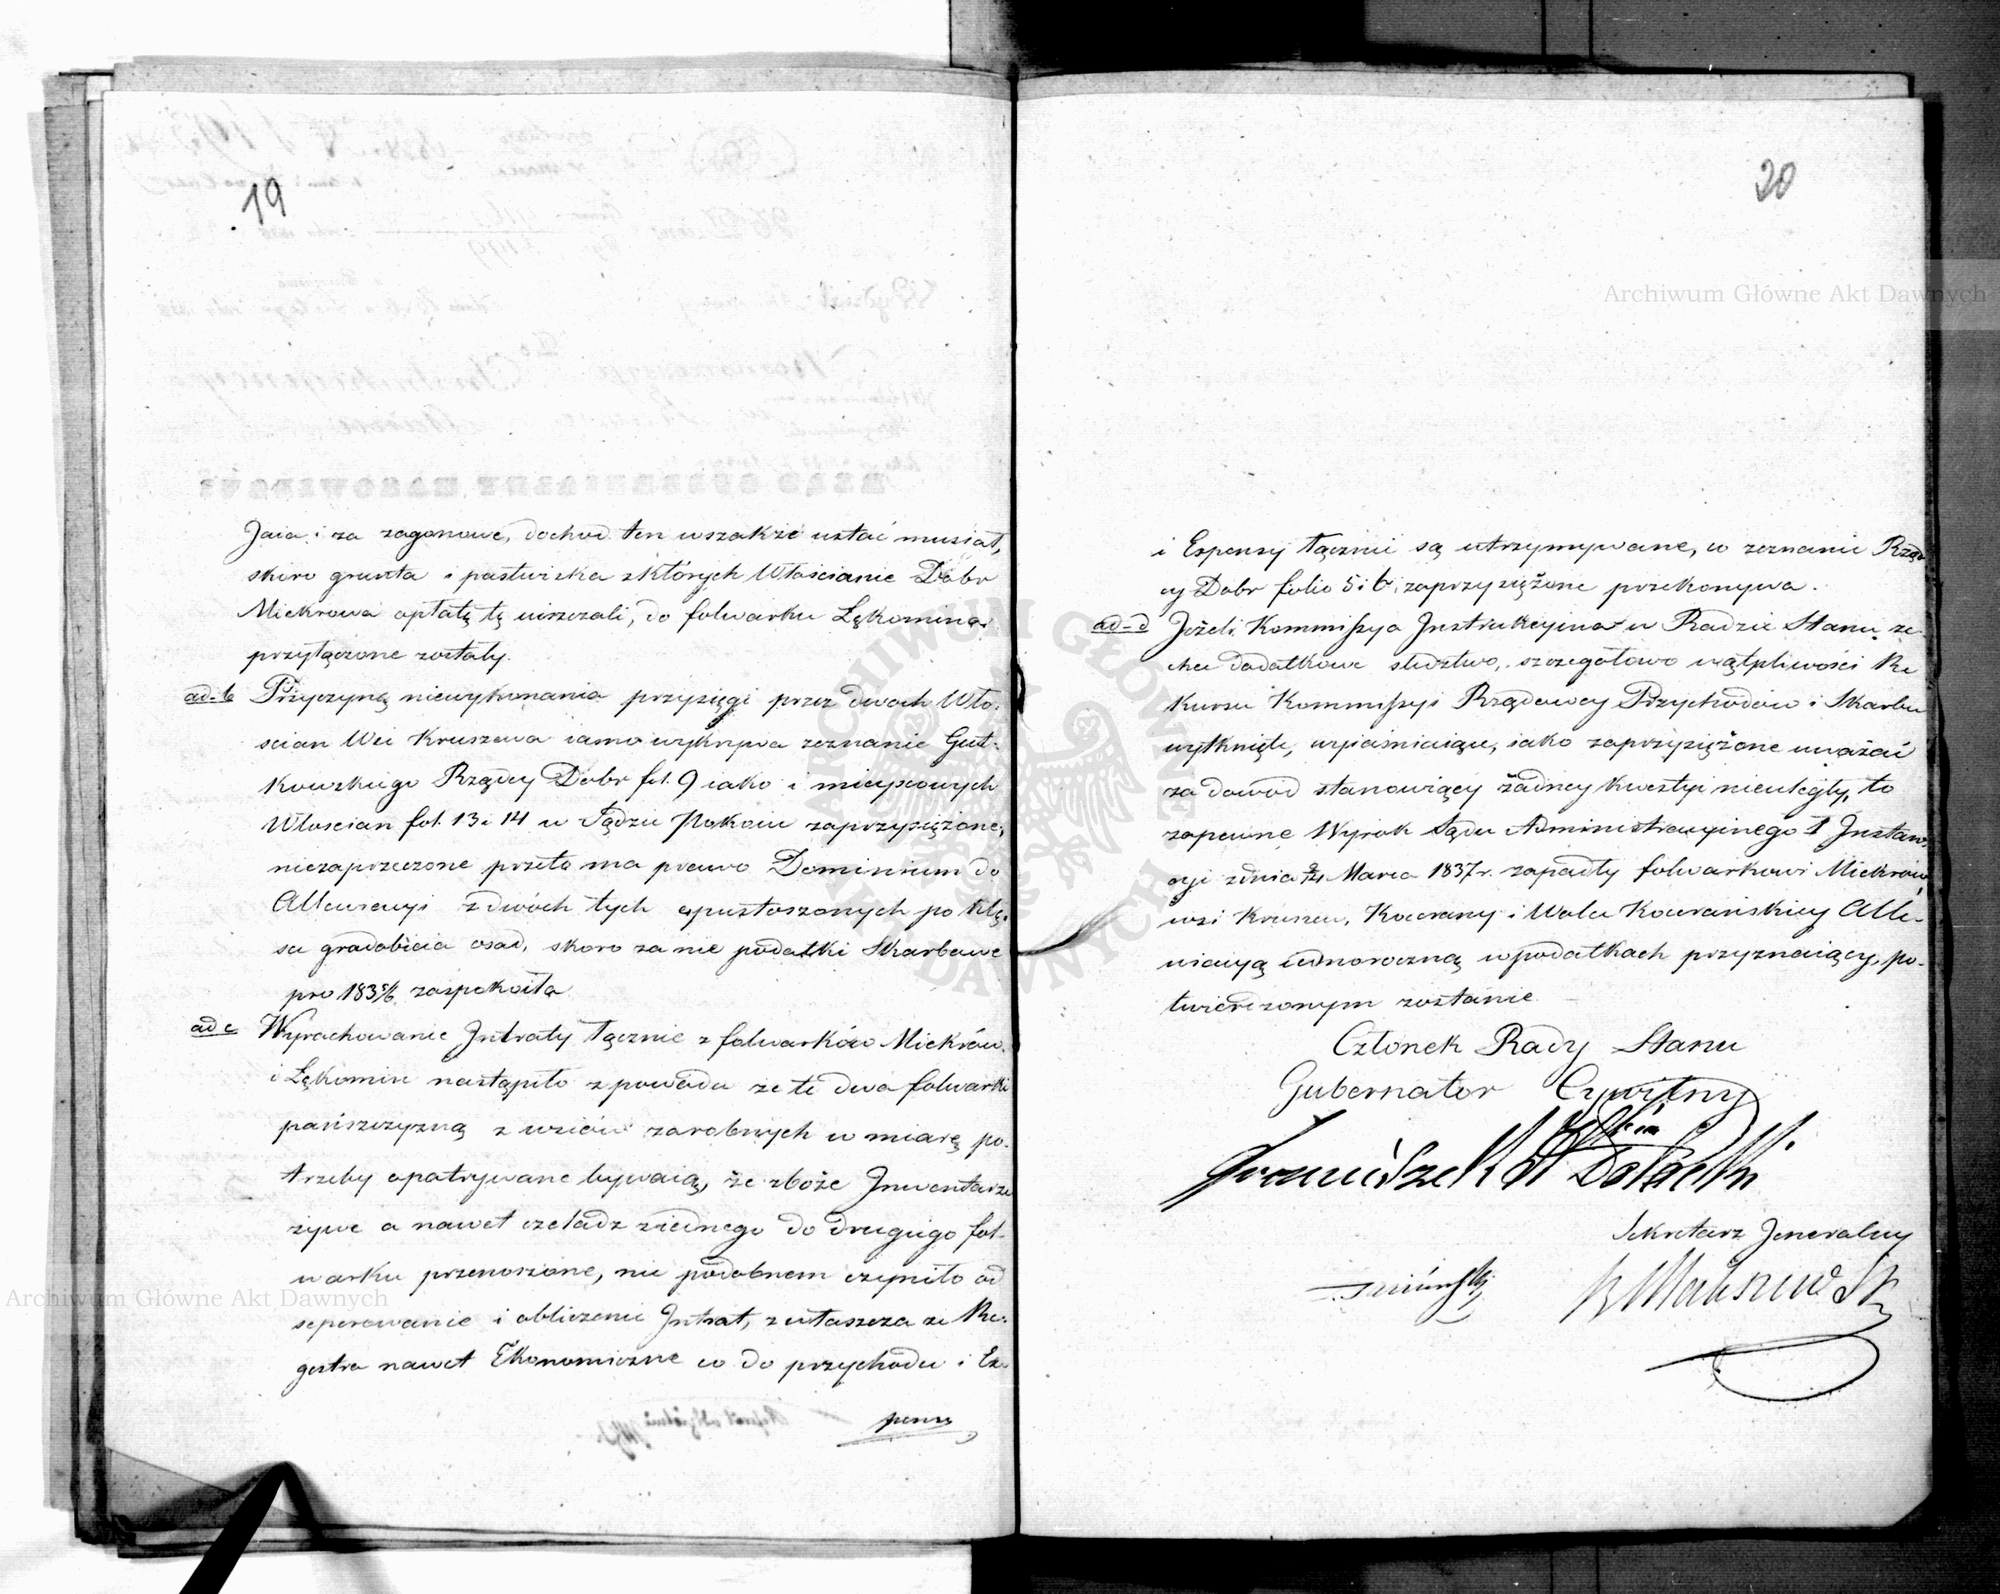 19
Jaia i za zagonowe, dochod ten wszakże ustać musiał,
skoro grunta i pastwiska z których Włościanie Dóbr
Miekrowa opłatę tę uiszczali, do folwarku Łękomina
przyłączone zostały.
ad-b Przyczyną niewykonania przysięgi przez dwóch Wło-
ścian Wsi Kruszewa iasno wykrywa zeznanie Gut-
kowskiego Rządcy Dóbr fol. 9 iako i mieyscowych
Włoscian fol. 13 i 14 w Sądzu Pokoiu zaprzysiężone,
niezaprzeczone przeto ma prawo Dominium do
Allewiacyi z dwóch tych opustoszonych po klę-
sce gradobicia osad, skoro za nie podatki Skarbowe
pro 1835/6 zaspokoiła
ad c Wyrachowanie Intraty łącznie z folwarków Miekrów
i Łękomin nastąpiło z powodu że te dwa folwarki
pańszczyzną z wsiów zarobnych w miarę po-
trzeby opatrywane bywaią, że zboże Inwentarze
żywe a nawet czeladz z iednego do drugiego fol-
warku przenoszone, nie podobnem czyniło od
seperowanie i obliczenie Intrat, zwłaszcza że Re-
gestra nawet Ekonomiczne co do przychodu i Ex-
pensy
20
i Expensy łącznie są utrzymywane, co zeznanie Rząd-
cy Dóbr folio 5 i 6 zaprzysiężone przekonywa.
ad-d Jeżeli Kommissya Instrukcyina w Radzie Stanu ze-
chce dodatkowe sledztwo, szczegółowo wątpliwości Re-
kursu Kommissyi Rządowey Przychodów i Skarbu
wytknięte, wyiaśniaiące, iako zaprzysiężone uważać
za dowod stanowiący żadney kwestyi nieuległy, to
zapewne Wyrok Sądu Administracyinego I Instan-
cyi z dnia Marca 1837 r. zapadły folwarkowi Miekrów,
wsi Kruszew, Kocerany i Wola Kocerańskiey Alle-
wiacyą iednoroczną w podatkach przyznaiący, po-
twierdzonym zostanie
Członek Rady Stanu
Gubernator Cywilny
Sekretarz Jeneralny
Archiwum Główne Akt Dawnych
Archiwum Główne Akt Dawnych
ARCHIWUM GŁÓWNE AKT DAWNYCH